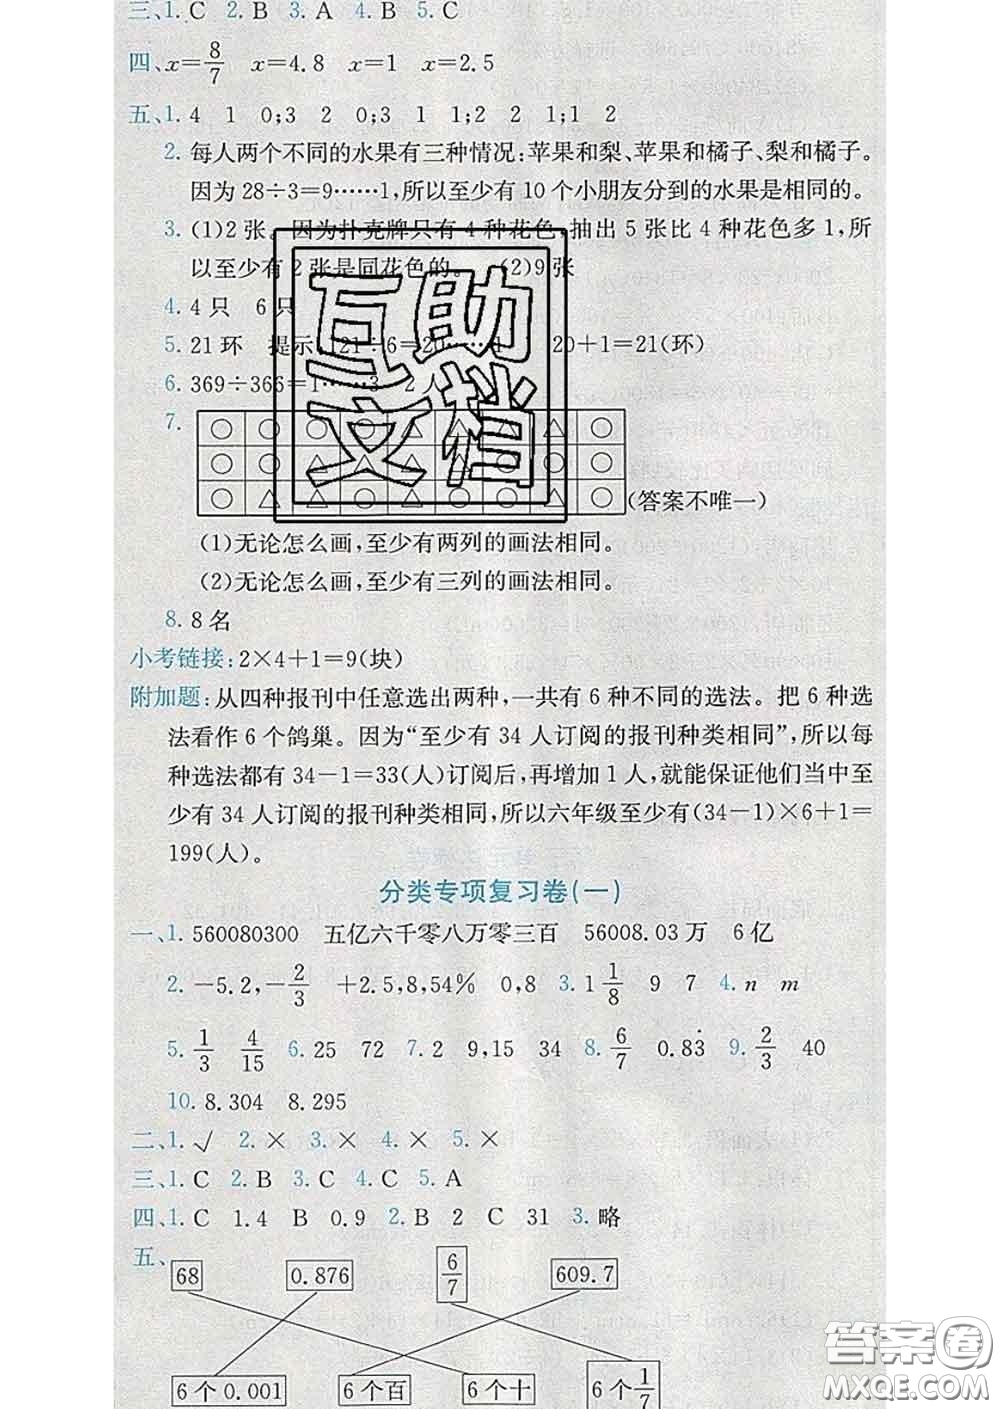 三、1. C 2. B 3. A 4. B 5. C
四、x=8/7 x=4.8 x=1 x=2.5
五、1. 4 1 0;3 2 0;3 1 1;2 2 1;1 2
2. 每人两个不同的水果有三种情况:苹果和梨、苹果和橘子、梨和橘子。
因为28÷3=9……1,所以至少有10个小朋友分到的水果是相同的。
3. (1)2张。因为扑克牌只有4种花色,抽出5张比4种花色多1,所
以至少有2张是同花色的。 (2)9张
4. 4只 6只
5. 21环 提示:121÷6=20……1 20+1=21(环)
6. 369÷366=1……3 2人
7.
(答案不唯一)
(1)无论怎么画,至少有两列的画法相同。
(2)无论怎么画,至少有三列的画法相同。
8. 8名
小考链接:2×4+1=9(块)
附加题:从四种报刊中任意选出两种,一共有6种不同的选法。把6种选
法看作6个鸽巢。因为“至少有34人订阅的报刊种类相同”,所以每
种选法都有34-1=33(人)订阅后,再增加1人,就能保证他们当中至
少有34人订阅的报刊种类相同,所以六年级至少有(34-1)×6+1=
199(人)。
分类专项复习卷(一)
一、1. 560080300 五亿六千零八万零三百 56008.03万 6亿
2. -5.2,-2/3 +2.5,8,54% 0,8 3. 1 1/8 9 7 4. n m
5. 1/3 4/15 6. 25 72 7. 2 9,15 34 8. 6/7 0.83̇ 9. 2/3 40
10. 8.304 8.295
二、1. √ 2. × 3. × 4. × 5. ×
三、1. C 2. B 3. C 4. C 5. A
四、1. C 1.4 B 0.9 2. B 2 C 31 3. 略
五、
68 0.876 6/7 609.7
6个0.001 6个百 6个十 6个1/7
互助
文档
答案圈
MXQE.COM